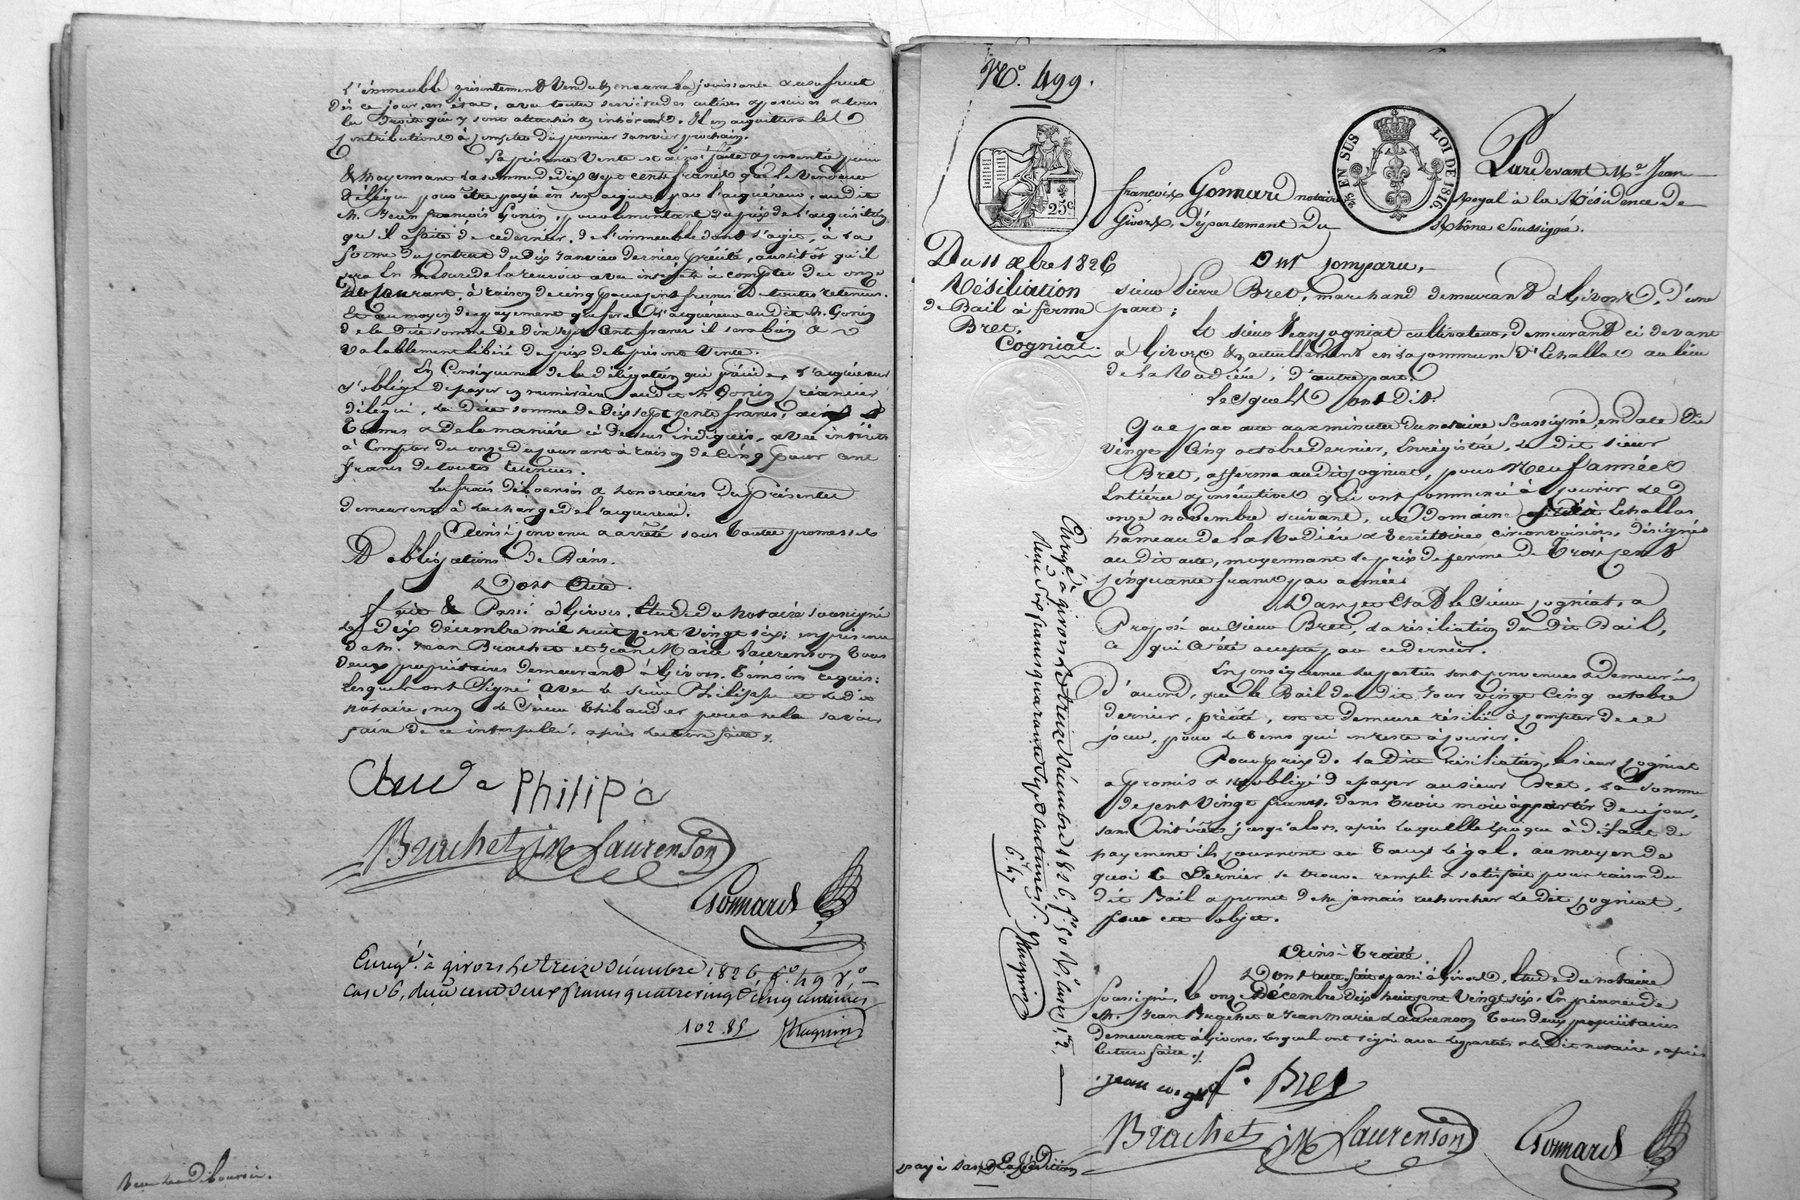 L'immeuble présentement vendu en aura la jouissance & usufruit
dès ce jour, en l'état, avec toutes servitudes actives & passives & tous
les droits qui y sont attachés &
contributions à compter du premier janvier prochain.
La présente vente est ainsi faite & consentie pour
& moyennant la somme de dix sept cents francs que le vendeur
délègue pour être payée en son acquit par l'acquéreur, au dit
M. Jean françois Gonin, pour le montant du prix de l'acquisition
qu'il a faite de ce dernier, de l'immeuble dont s'agit, à la
forme du contrat du dix Janvier dernier précité, aussitôt qu'il
sera en mesure de la recevoir avec intérêts à compter du onze
du courant, à raison de cinq pour cent francs de toutes retenues.
Et au moyen du payement que fera l'acquéreur au dit M. Gonin
de la dite somme de dix sept cents francs il sera bien &
valablement libéré du prix de la présente vente.
En conséquence de la délégation qui précède, l'acquéreur
s'oblige de payer en numéraire au dit M. Gonin, créancier
délégué, la dite somme de dix sept cents francs, aux
termes & de la manière ci dessus indiqués, avec intérêts
à compter du onze du courant à raison de cinq pour cent
francs de toutes retenues.
Les frais déboursés & honoraires des présentes
demeurent à la charge de l'acquéreur.
Ainsi convenu & arrêté sous toutes promesses
D'obligations de Biens.
Dont Acte.
fait & Passé à Givors, Etude du notaire soussigné
Le dix décembre mil huit cent vingt six; en présence
de M. Jean Brachet et Jean Marie Laurenson tous
deux propriétaires demeurant à Givors, témoins requis:
lesquels ont signé avec le sieur Philippe et le dit
notaire, non le sieur Thibaudier pour ne le savoir
faire de ce interpellé, après lecture faite.
Philip
Brachet J M Laurenson
Gonnard
Enregé. à givors le treize décembre 1826, f° 49 v°
case 6, reçu cent deux francs quatrevingt cinq centimes
102.85
N° 499.
25c
25c EN SUS
LOI DE 1816
Pardevant Me Jean
françois Gonnard notaire royal à la Résidence de
Givors, Département du Rhône soussigné.
Du 11 xbre 1826
Résiliation
de Bail à ferme
Bret.
Cogniat.
Ont comparu,
sieur Pierre Bret, marchand demeurant à Givors, d'une
part;
Et sieur Jean Cogniat cultivateur, demeurant ci devant
à Givors & actuellement en la commune d'Echallas au lieu
de la Rodière, d'autre part.
Lesquels ont dit.
Que par acte aux minutes du notaire soussigné, en date du
vingt cinq octobre dernier, enregistré, le dit sieur
Bret, afferma au dit Cogniat, pour neuf années
entières & consécutives qui ont commencé à courir le
onze novembre suivant, un Domaine situé à Echallas
hameau de la Rodière & territoires circonvoisins, désigné
au dit acte, moyennant le prix de ferme de trois cents
cinquante francs par année.
Dans cet état le sieur Cogniat, a
Proposé au sieur Bret, la résiliation du dit Bail,
ce qui a été accepté par ce dernier.
En conséquence les parties sont convenues & demeurées
d'accord, que le Bail du dit jour vingt cinq octobre
dernier, précité, est et demeure résilié à compter de ce
jour, pour le tems qui en reste à courir.
Pour prix de la dite résiliation, le sieur Cogniat
a promis & s'est obligé de payer au sieur Bret, la somme
de cent vingt francs, dans trois mois à partir de ce jour,
sans intérêts jusqu'alors, après laquelle époque à défaut de
payement ils courront au taux légal, au moyen de
quoi le dernier se trouve rempli & satisfait pour raison du
dit Bail & promet de ne jamais rechercher le dit Cogniat,
pour cet objet.
Ainsi traité
Dont acte, fait & passé à Givors, Etude du notaire
soussigné, le onze Décembre dix huit cent vingt six, en présence de
M. Jean Brachet & Jean Marie Laurenson tous deux propriétaires
demeurant à Givors, lesquels ont signé avec les parties & le dit notaire, après
lecture faite.
jean cogniat P. Bret
Brachet J M Laurenson Gonnard
Enregé. à givors le treize décembre 1826. f° 50 v° case 1re,
reçu six francs quarante sept centimes.
6.47
payé sans Expédition